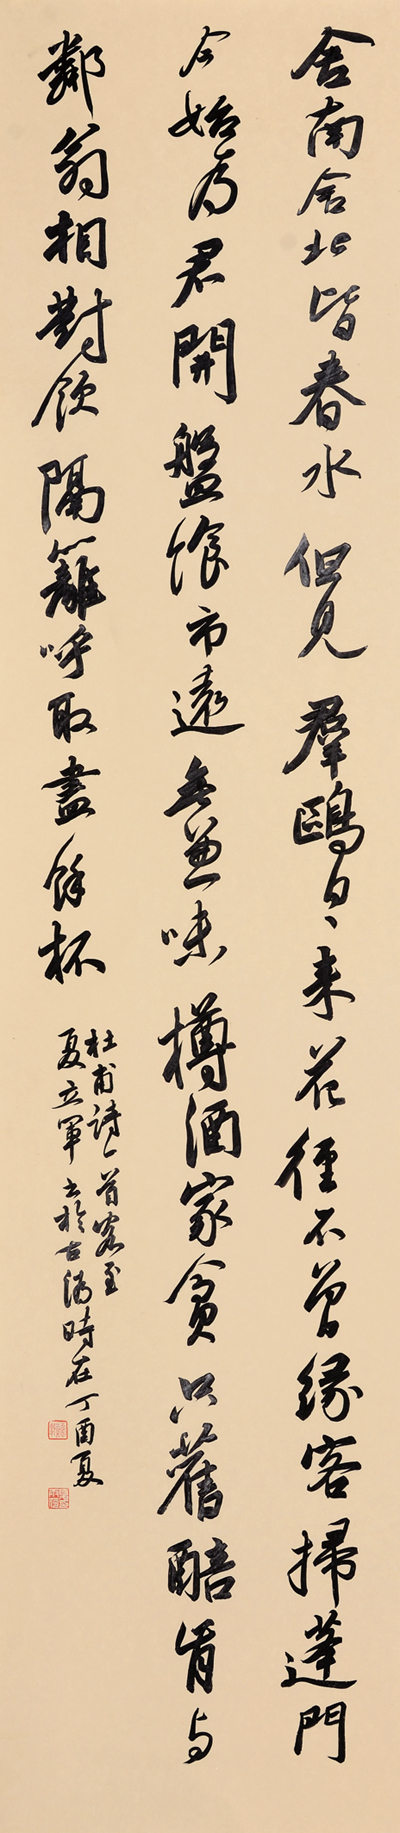 舍南舍北皆春水但見羣鷗日々来花徑不曾緣客掃蓬門
今始為君開盤飧市遠無兼味樽酒家貧只舊醅肯与
鄰翁相對飲隔籬呼取盡餘杯
杜甫詩一首客至
夏立軍書於古沛時在丁酉夏